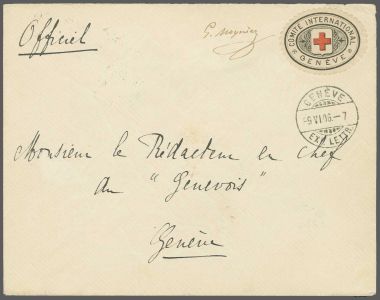 Officiel
G. Moynier
COMITÉ INTERNATIONAL
GENÈVE
GENÈVE
-9 VI 06.-7
EXP. LETTR.
Monsieur le Rédacteur en chef
du "Genevois"
Genève